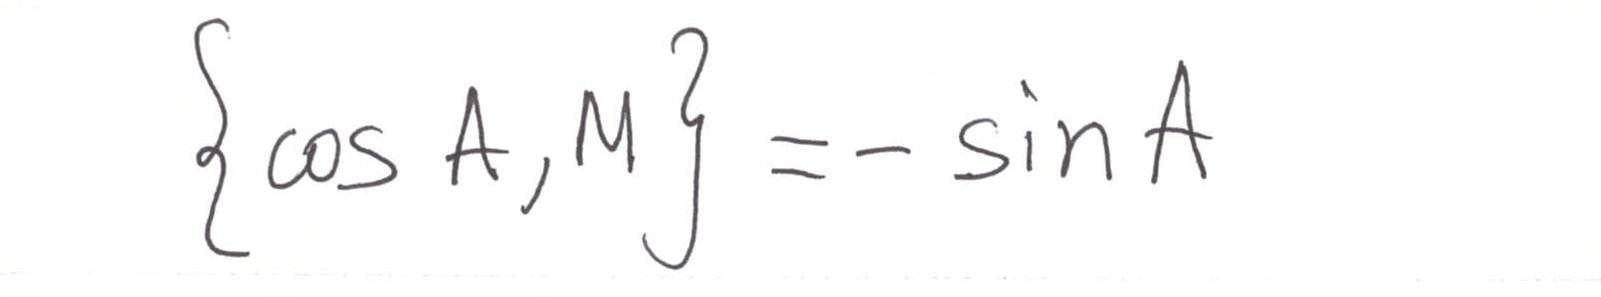 {cos A, M} = - sin A